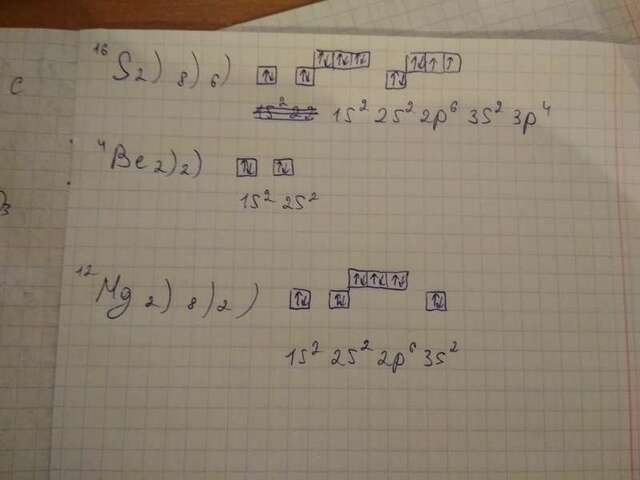 16 S 2) 8) 6) ↑↓ ↑↓ ↑↓ ↑↓ ↑↓ ↑↓ ↑↓ ↑ ↑
1s² 2s² 2p⁶ 3s² 3p⁴
4 Be 2) 2) ↑↓ ↑↓
1s² 2s²
12 Mg 2) 8) 2) ↑↓ ↑↓ ↑↓ ↑↓ ↑↓ ↑↓
1s² 2s² 2p⁶ 3s²